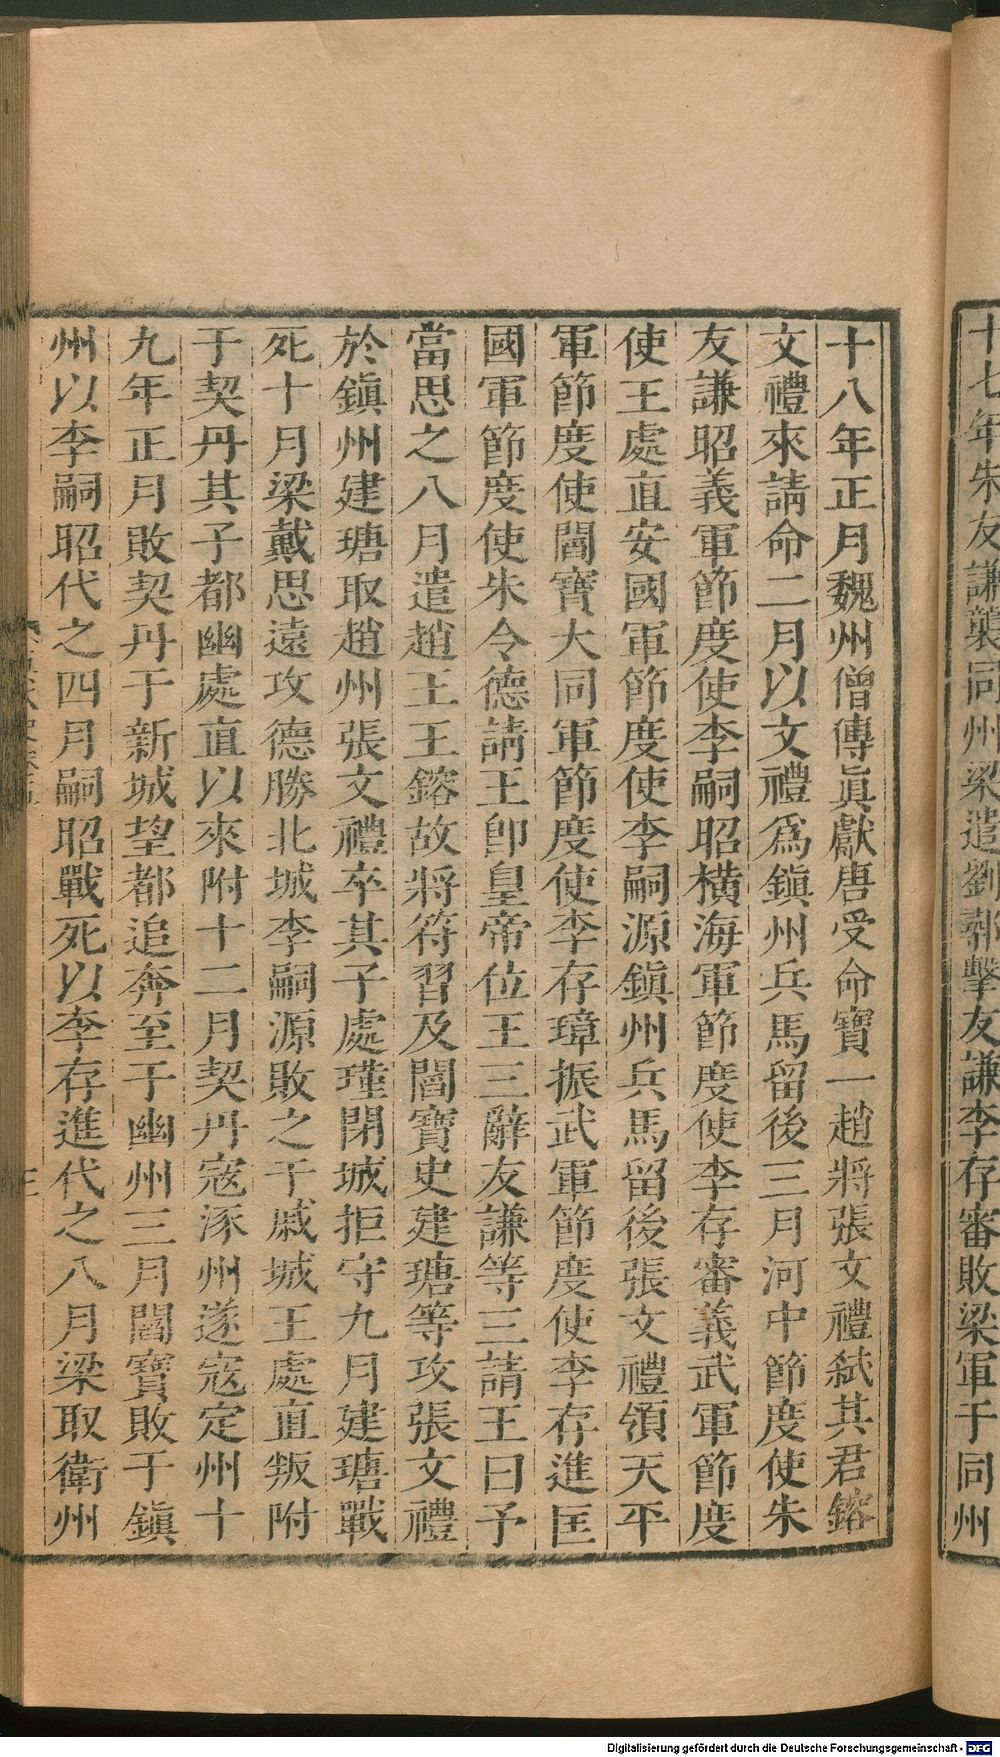 十七年朱友謙襲同州梁遣劉鄩擊友謙李存審敗梁軍于同州
十八年正月魏州僧傳眞獻唐受命寶一趙將張文禮弑其君鎔
文禮來請命二月以文禮爲鎭州兵馬留後三月河中節度使朱
友謙昭義軍節度使李嗣昭橫海軍節度使李存審義武軍節度
使王處直安國軍節度使李嗣源鎭州兵馬留後張文禮領天平
軍節度使閻寶大同軍節度使李存璋振武軍節度使李存進匡
國軍節度使朱令德請王卽皇帝位王三辭友謙等三請王曰予
當思之八月遣趙王王鎔故將符習及閻寶史建瑭等攻張文禮
於鎭州建瑭取趙州張文禮卒其子處瑾閉城拒守九月建瑭戰
死十月梁戴思遠攻德勝北城李嗣源敗之于戚城王處直叛附
于契丹其子都幽處直以來附十二月契丹寇涿州遂寇定州十
九年正月敗契丹于新城望都追奔至于幽州三月閻寶敗于鎭
州以李嗣昭代之四月嗣昭戰死以李存進代之八月梁取衛州
Digitalisierung gefördert durch die Deutsche Forschungsgemeinschaft - DFG